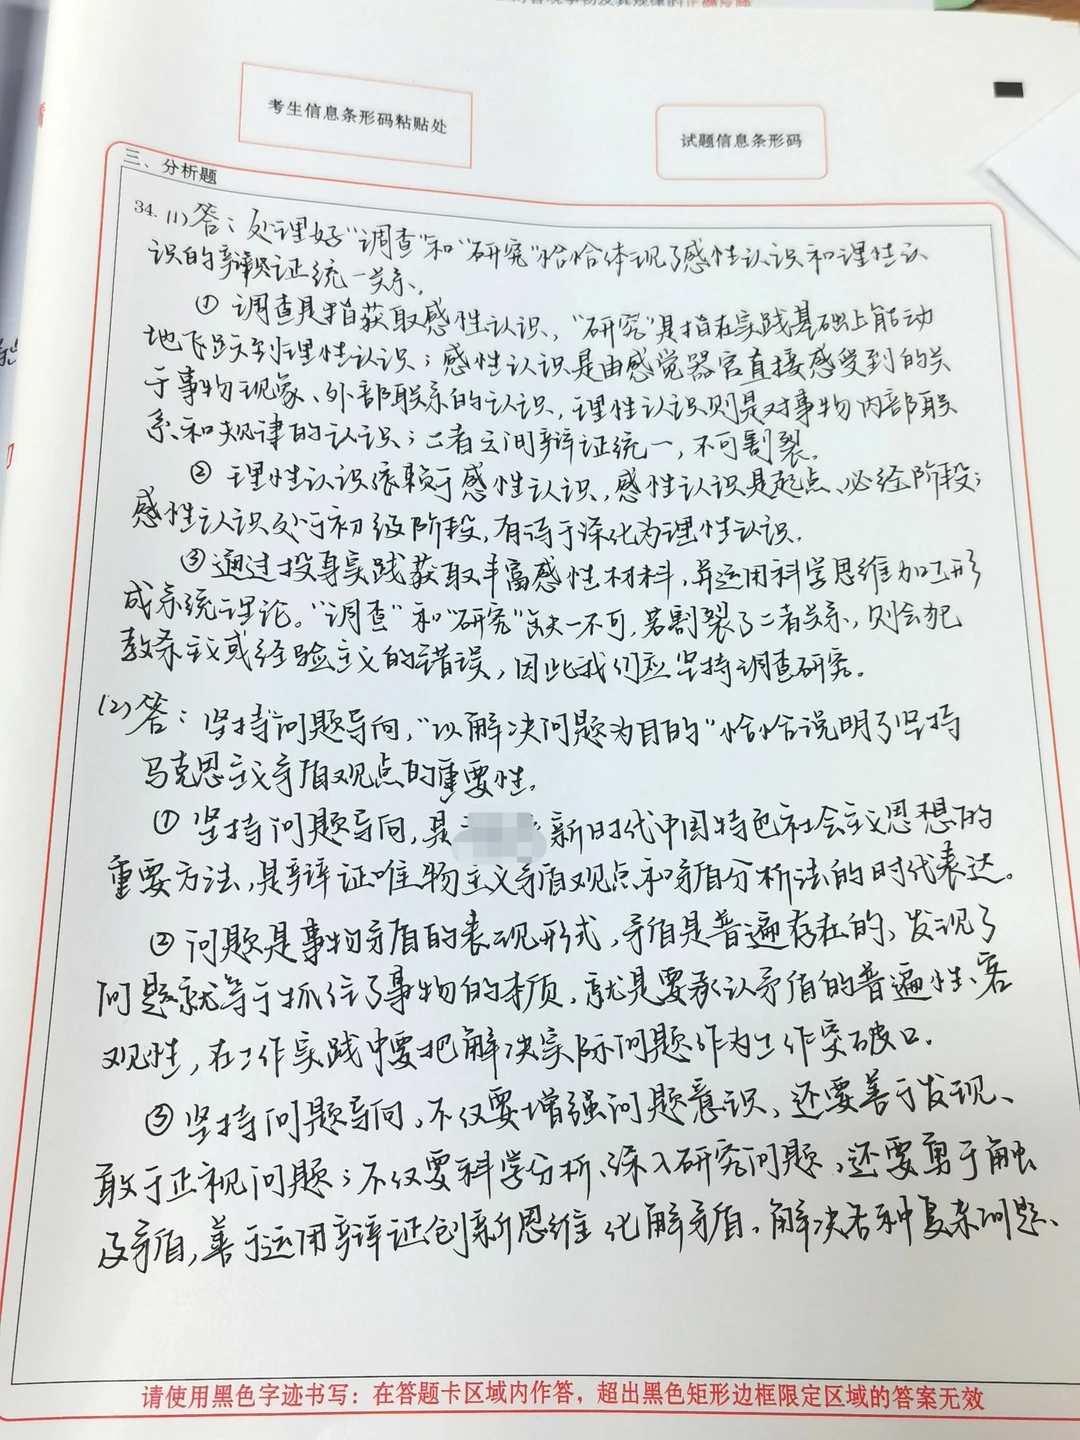 考生信息条形码粘贴处
试题信息条形码
三、分析题
34. (1)答：处理好"调查"和"研究"恰恰体现了感性认识和理性认
识的辩证统一关系。
① 调查是指获取感性认识，"研究"是指在实践基础上能动
地飞跃到理性认识；感性认识是由感觉器官直接感受到的关
于事物现象、外部联系的认识，理性认识则是对事物内部联
系和规律的认识；二者之间辩证统一，不可割裂。
② 理性认识依赖于感性认识，感性认识是起点、必经阶段；
感性认识处于初级阶段，有待于深化为理性认识。
③ 通过投身实践获取丰富感性材料，并运用科学思维加工形
成系统理论。"调查"和"研究"缺一不可，若割裂了二者关系，则会犯
教条主义或经验主义的错误，因此我们应坚持调查研究。
(2)答：坚持问题导向，"以解决问题为目的"恰恰说明了坚持
马克思主义矛盾观点的重要性。
① 坚持问题导向，是 新时代中国特色社会主义思想的
重要方法，是辩证唯物主义矛盾观点和矛盾分析法的时代表达。
② 问题是事物矛盾的表现形式，矛盾是普遍存在的，发现了
问题就等于抓住了事物的本质，就是要承认矛盾的普遍性、客
观性，在工作实践中要把解决实际问题作为工作突破口。
③ 坚持问题导向，不仅要增强问题意识，还要善于发现、
敢于正视问题；不仅要科学分析、深入研究问题，还要勇于触
及矛盾，善于运用辩证创新思维化解矛盾，解决各种复杂问题、
请使用黑色字迹书写：在答题卡区域内作答，超出黑色矩形边框限定区域的答案无效